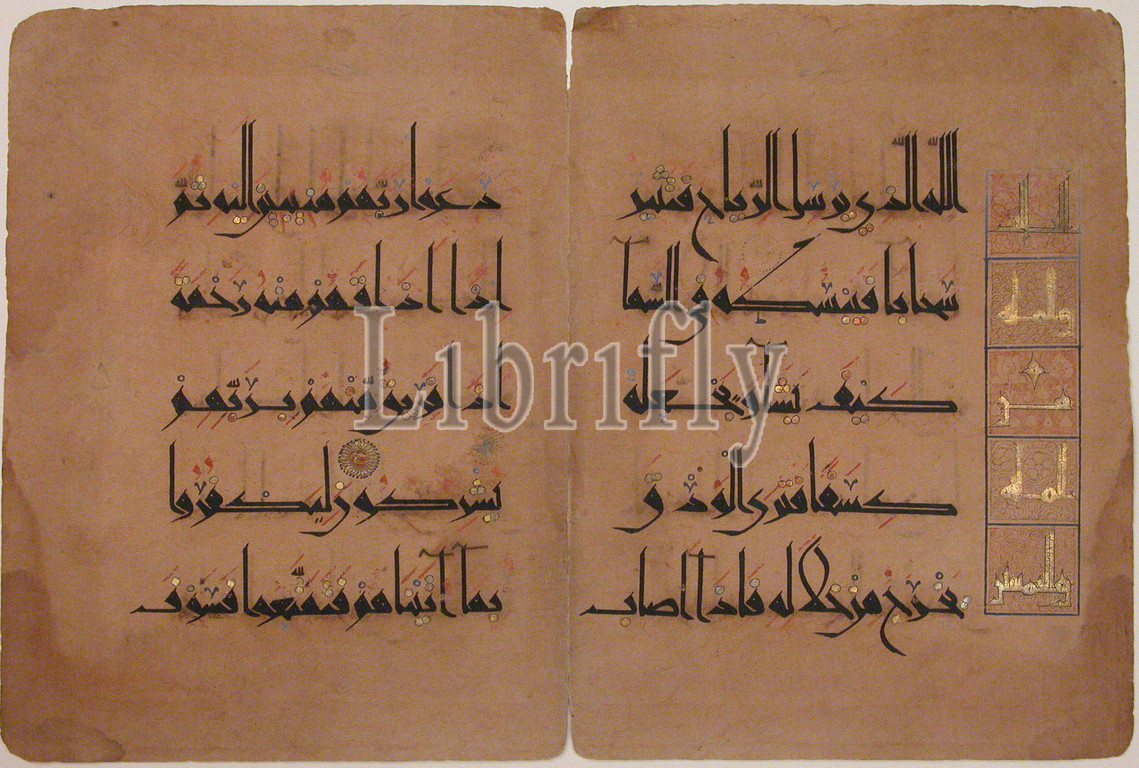 الله الذي يرسل الرياح فتثير
سحابا فيبسطه في السمآ
كيف يشآ ويجعله
كسفا فترى الودق
يخرج من خلاله فاذا اصاب
دعوا ربهم منيبين اليه ثم
اذا اذاقهم منه رحمة
اذا فريق منهم بربهم
يشركون ليكفروا
بمآ آتيناهم فتمتعوا فسوف
Librifly